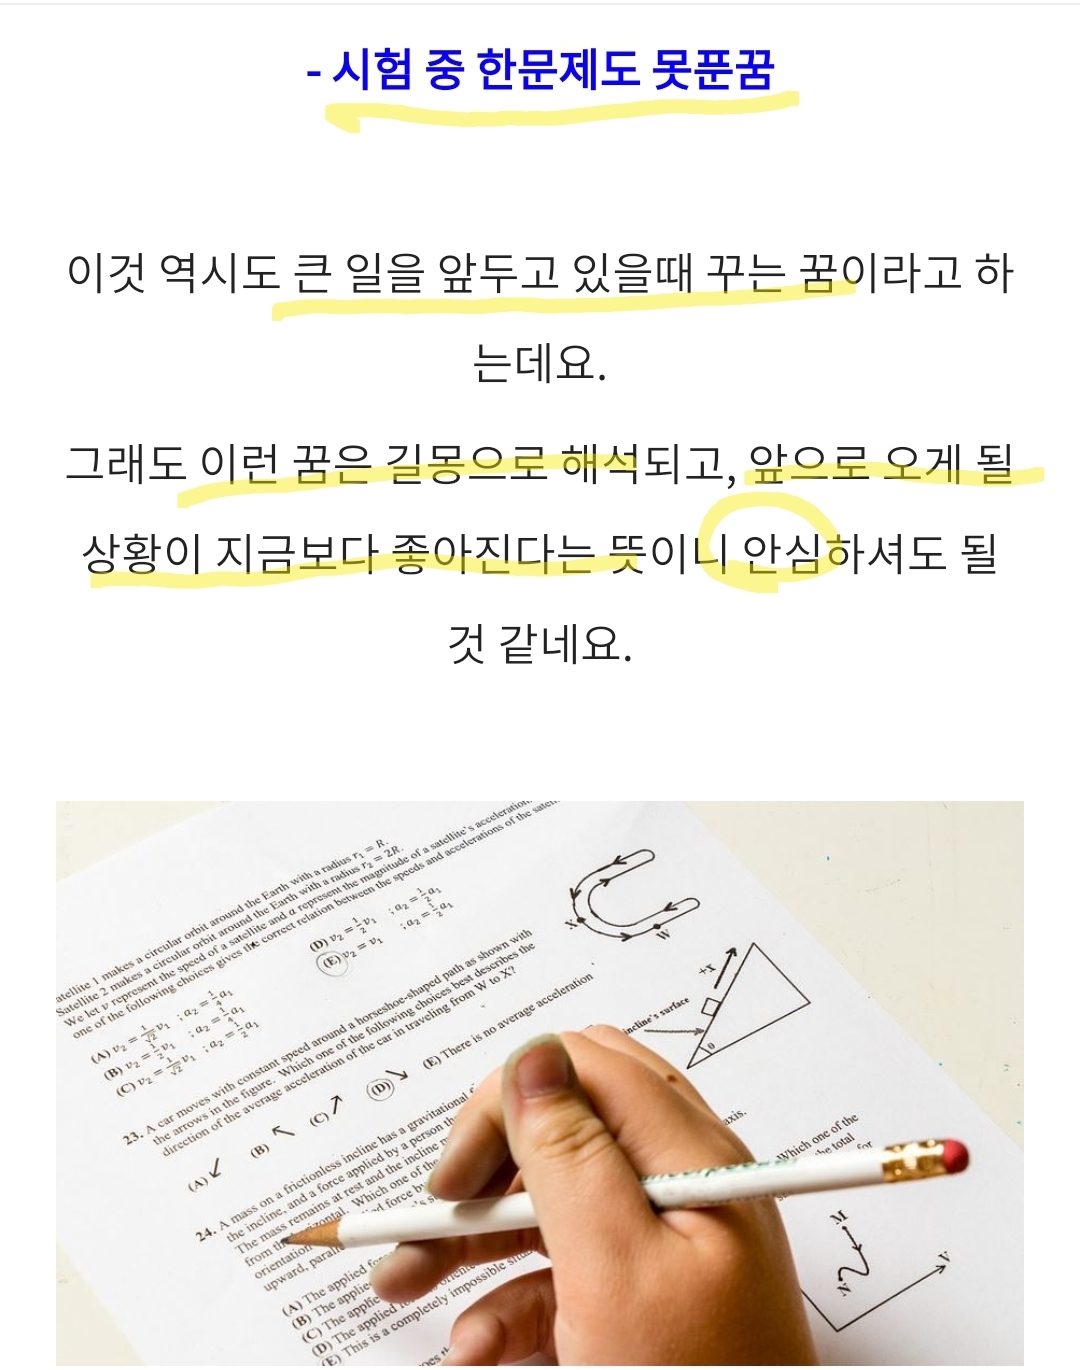 - 시험 중 한문제도 못푼꿈
이것 역시도 큰 일을 앞두고 있을때 꾸는 꿈이라고 하
는데요.
그래도 이런 꿈은 길몽으로 해석되고, 앞으로 오게 될
상황이 지금보다 좋아진다는 뜻이니 안심하셔도 될
것 같네요.
atellite 1 makes a circular orbit around the Earth with a radius r₁ = R.
Satellite 2 makes a circular orbit around the Earth with a radius r₂ = 2R.
We let v represent the speed of a satellite and a represent the magnitude of a satellite's acceleration.
one of the following choices gives the correct relation between the speeds and accelerations of the
(A) v₂ = 1/√2 v₁ ; a₂ = 1/4 a₁
(B) v₂ = 1/2 v₁ ; a₂ = 1/4 a₁
(C) v₂ = 1/√2 v₁ ; a₂ = 1/2 a₁
(D) v₂ = 1/2 v₁ ; a₂ = 1/2 a₁
(E) v₂ = v₁ ; a₂ = 1/2 a₁
23. A car moves with constant speed around a horseshoe-shaped path as shown with
the arrows in the figure. Which one of the following choices best describes the
direction of the average acceleration of the car in traveling from W to X?
(A) (B) (C) (D) (E) There is no average acceleration
X W
24. A mass on a frictionless incline has a gravitational
the incline, and a force applied by a person
The mass remains at rest and the incline
from Which one of the
orientation force
upward,
+x
incline's surface
θ
axis.
Which one of the
the total
for
(A) The applied
(B) The applied
(C) The
(D) The applied
(E) This is a completely impossible
M
N
V